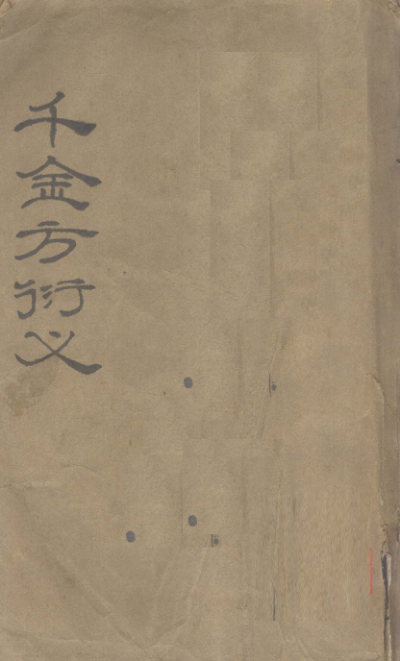 千金方衍义